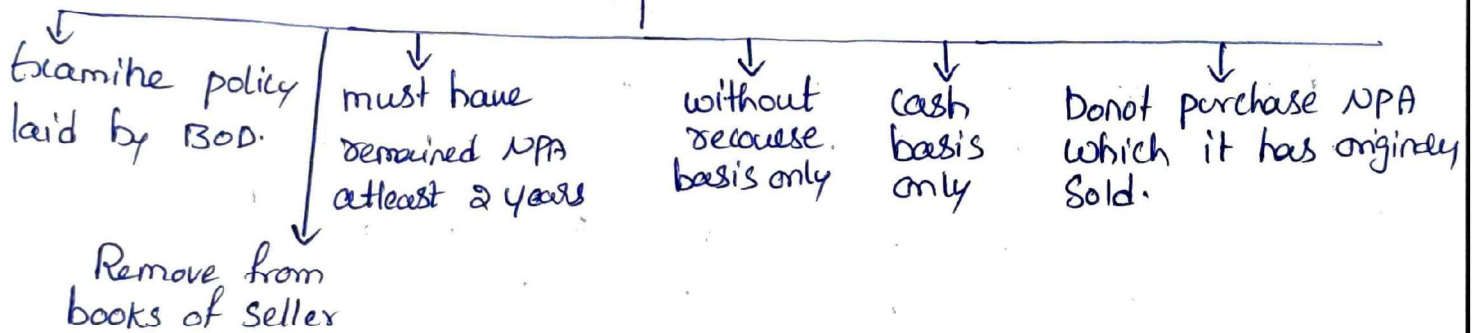 Examine policy
laid by BOD.
Remove from
books of seller
must have
remained NPA
atleast 2 years
without
recouese.
basis only
cash
basis
only
Donot purchase NPA
which it has originaly
Sold.